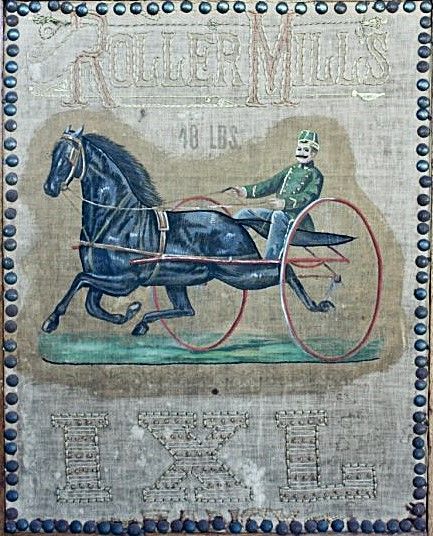 ROLLER MILLS
48 LBS.
IXL